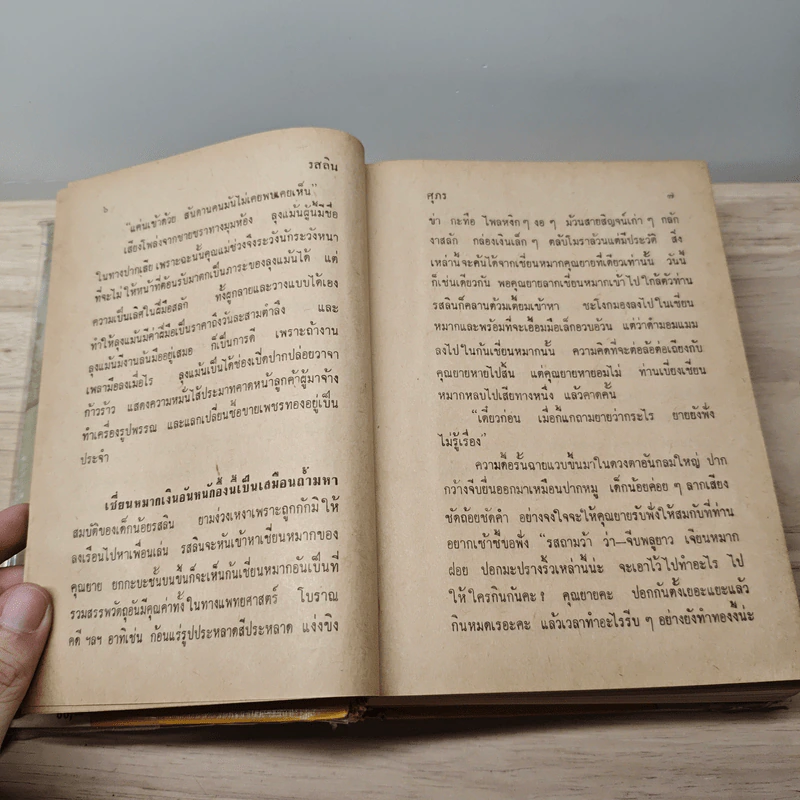 ๖
รสลิน
"แค่นเข้าด้วย สันดานคนมันไม่เคยพบเคยเห็น"
เสียงโพล่งจากชายชราทางมุมห้อง ลุงแม้นผู้นี้มีชื่อ
ในทางปากเสีย เพราะฉะนั้นคุณแม่ช่วงจึงระวังนักระวังหนา
ที่จะไม่ให้หน้าที่ต้อนรับมาตกเป็นภาระของลุงแม้นได้ แต่
ความเป็นเลิศในฝีมือสลัก ทั้งผูกลายและวางแบบได้เอง
ทำให้ลุงแม้นมีค่าฝีมือเป็นราคาถึงวันละสามตำลึง และ
ลุงแม้นมีงานล้นมืออยู่เสมอ ก็เป็นการดี เพราะถ้างาน
เพลามือลงเมื่อไร ลุงแม้นเป็นได้ช่องเปิดปากปล่อยวาจา
ก้าวร้าว แสดงความหมั่นไส้ประมาทคาดหน้าลูกค้าผู้มาจ้าง
ทำเครื่องรูปพรรณ และแลกเปลี่ยนซื้อขายเพชรทองอยู่เป็น
ประจำ
เชี่ยนหมากเงินอันหนักอึ้งนี้เป็นเสมือนถ้ำมหา
สมบัติของเด็กน้อยรสลิน ยามง่วงเหงาเพราะถูกกักมิให้
ลงเรือนไปหาเพื่อนเล่น รสลินจะหันเข้าหาเชี่ยนหมากของ
คุณยาย ยกกะบะชั้นบนขึ้นก็จะเห็นก้นเชี่ยนหมากอันเป็นที่
รวมสรรพวัตถุอันมีคุณค่าทั้งในทางแพทยศาสตร์ โบราณ
คดี ฯลฯ อาทิเช่น ก้อนแร่รูปประหลาดสีประหลาด แง่งขิง
ศุภร
๗
ข่า กะทือ ไพลหงิก ๆ งอ ๆ ม้วนสายสิญจน์เก่า ๆ กลัก
งาสลัก กล่องเงินเล็ก ๆ ตลับโบราล้วนแต่มีประวัติ สิ่ง
เหล่านี้จะค้นได้จากเชี่ยนหมากคุณยายที่เดียวเท่านั้น วันนี้
ก็เช่นเดียวกัน พอคุณยายลากเชี่ยนหมากเข้าไปใกล้ตัวท่าน
รสลินก็คลานต้วมเตี้ยมเข้าหา ชะโงกมองลงไปในเชี่ยน
หมากและพร้อมที่จะเอื้อมมือเล็กอวบอ้วน แต่ว่าดำมอมแมม
ลงไปในก้นเชี่ยนหมากนั้น ความคิดที่จะต่อล้อต่อเถียงกับ
คุณยายหายไปสิ้น แต่คุณยายหายอมไม่ ท่านเบี่ยงเชี่ยน
หมากหลบไปเสียทางหนึ่ง แล้วคาดคั้น
"เดี๋ยวก่อน เมื่อกี้แกถามยายว่ากระไร ยายยังฟัง
ไม่รู้เรื่อง"
ความดื้อรั้นฉายแวบขึ้นมาในดวงตาอันกลมใหญ่ ปาก
กว้างจีบยื่นออกมาเหมือนปากหมู เด็กน้อยค่อย ๆ ลากเสียง
ชัดถ้อยชัดคำ อย่างจงใจจะให้คุณยายรับฟังให้สมกับที่ท่าน
อยากเซ้าซี้ขอฟัง "รสถามว้า ว่า—จีบพลูยาว เจียนหมาก
ฝอย ปอกมะปรางริ้วเหล่านี้น่ะ จะเอาไว้ไปทำอะไร ไป
ให้ใครกินกันคะ? คุณยายคะ ปอกกันตั้งเยอะแยะแล้ว
กินหมดเรอะคะ แล้วเวลาทำอะไรรีบ ๆ อย่างยังทำทองงี้น่ะ